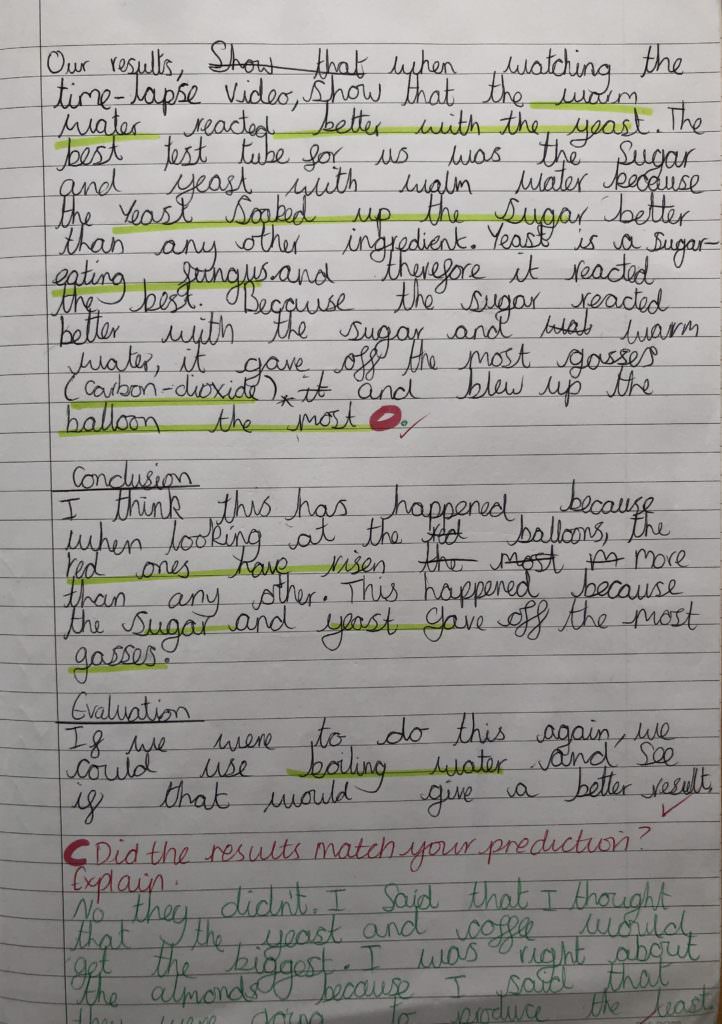 Our results, Show that when watching the
time-lapse video, show that the warm
water reacted better with the yeast. The
best test tube for us was the sugar
and yeast with walm water because
the Yeast soaked up the sugar better
than any other ingredient. Yeast is a sugar-
eating fungus.and therefore it reacted
the best. Because the sugar reacted
better with the sugar and wat warm
water, it gave off the most gasses
(carbon-dioxide)* it and blew up the
balloon the most.
Conclusion
I think this has happened because
when looking at the red balloons, the
red ones have risen the most m more
than any other. This happened because
the sugar and yeast gave off the most
gasses.
Evaluation
If we were to do this again, we
could use boiling water and see
if that would give a better result.
C Did the results match your prediction?
Explain.
No they didn't. I said that I thought
that the yeast and coffee would
get the biggest. I was right about
the almonds because I said that
they were going to produce the least